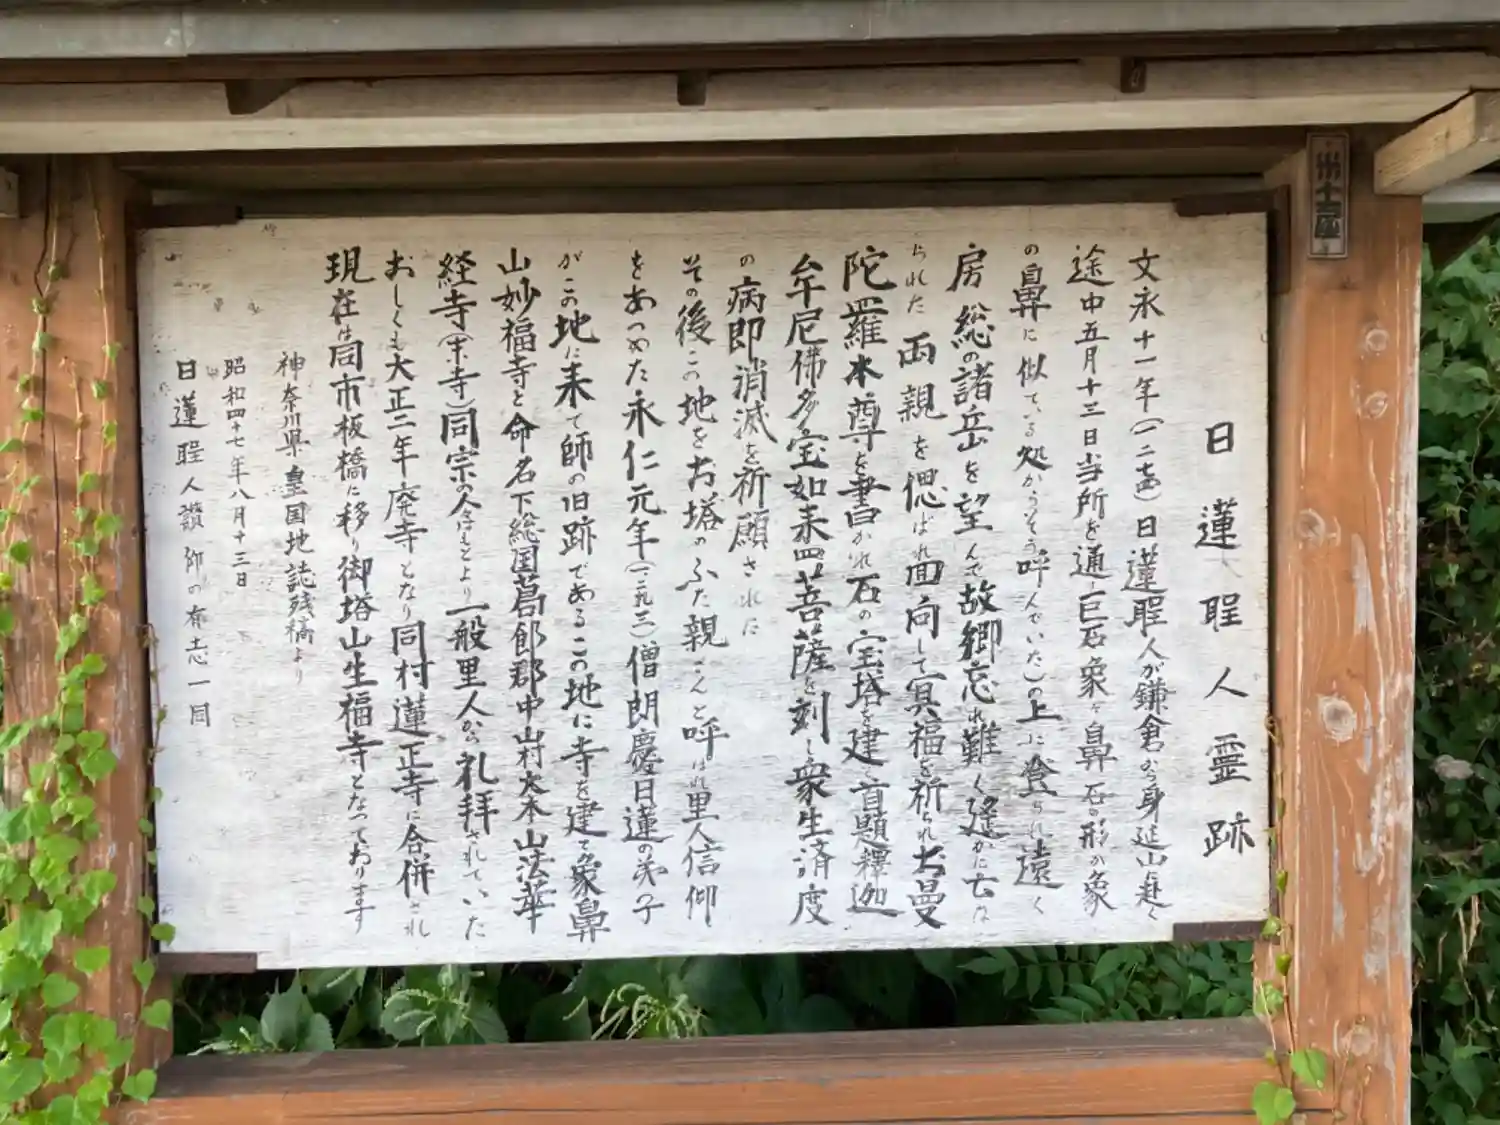 日蓮聖人霊跡
文永十一年(一二七四)日蓮聖人が鎌倉から身延山に赴く
途中五月十三日当所を通一巨石象ヶ鼻(石の形が象
の鼻に似ている処からそう呼んでいた)の上に登られ遠く
房総の諸岳を望んで故郷忘れ難く遙かに亡な
られた両親を偲ばれ回向して冥福を祈られお曼
陀羅本尊を書かれ石の宝塔を建て首題釋迦
牟尼佛多宝如来四菩薩を刻し衆生済度
の病即消滅を祈願された
その後この地をお塔のふた親さんと呼ばれ里人信仰
をあつめた永仁元年(一二九三)僧朗慶日蓮の弟子
がこの地に来て師の旧跡であるこの地に寺を建て象鼻
山妙福寺と命名下総国葛飾郡中山村大本山法華
経寺(末寺)同宗の人はもとより一般里人から礼拝されていた
おしくも大正二年廃寺となり同村蓮正寺に合併され
現在は同市板橋に移り御塔山生福寺となっております
神奈川県皇国地誌残稿より
昭和四十七年八月十三日
日蓮聖人讃仰の有志一同
土屋